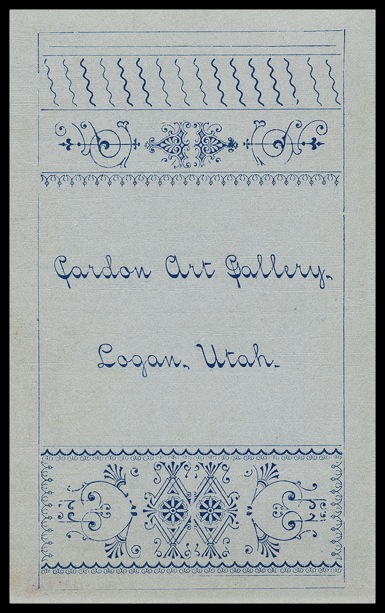 Cardon Art Gallery.
Logan, Utah.